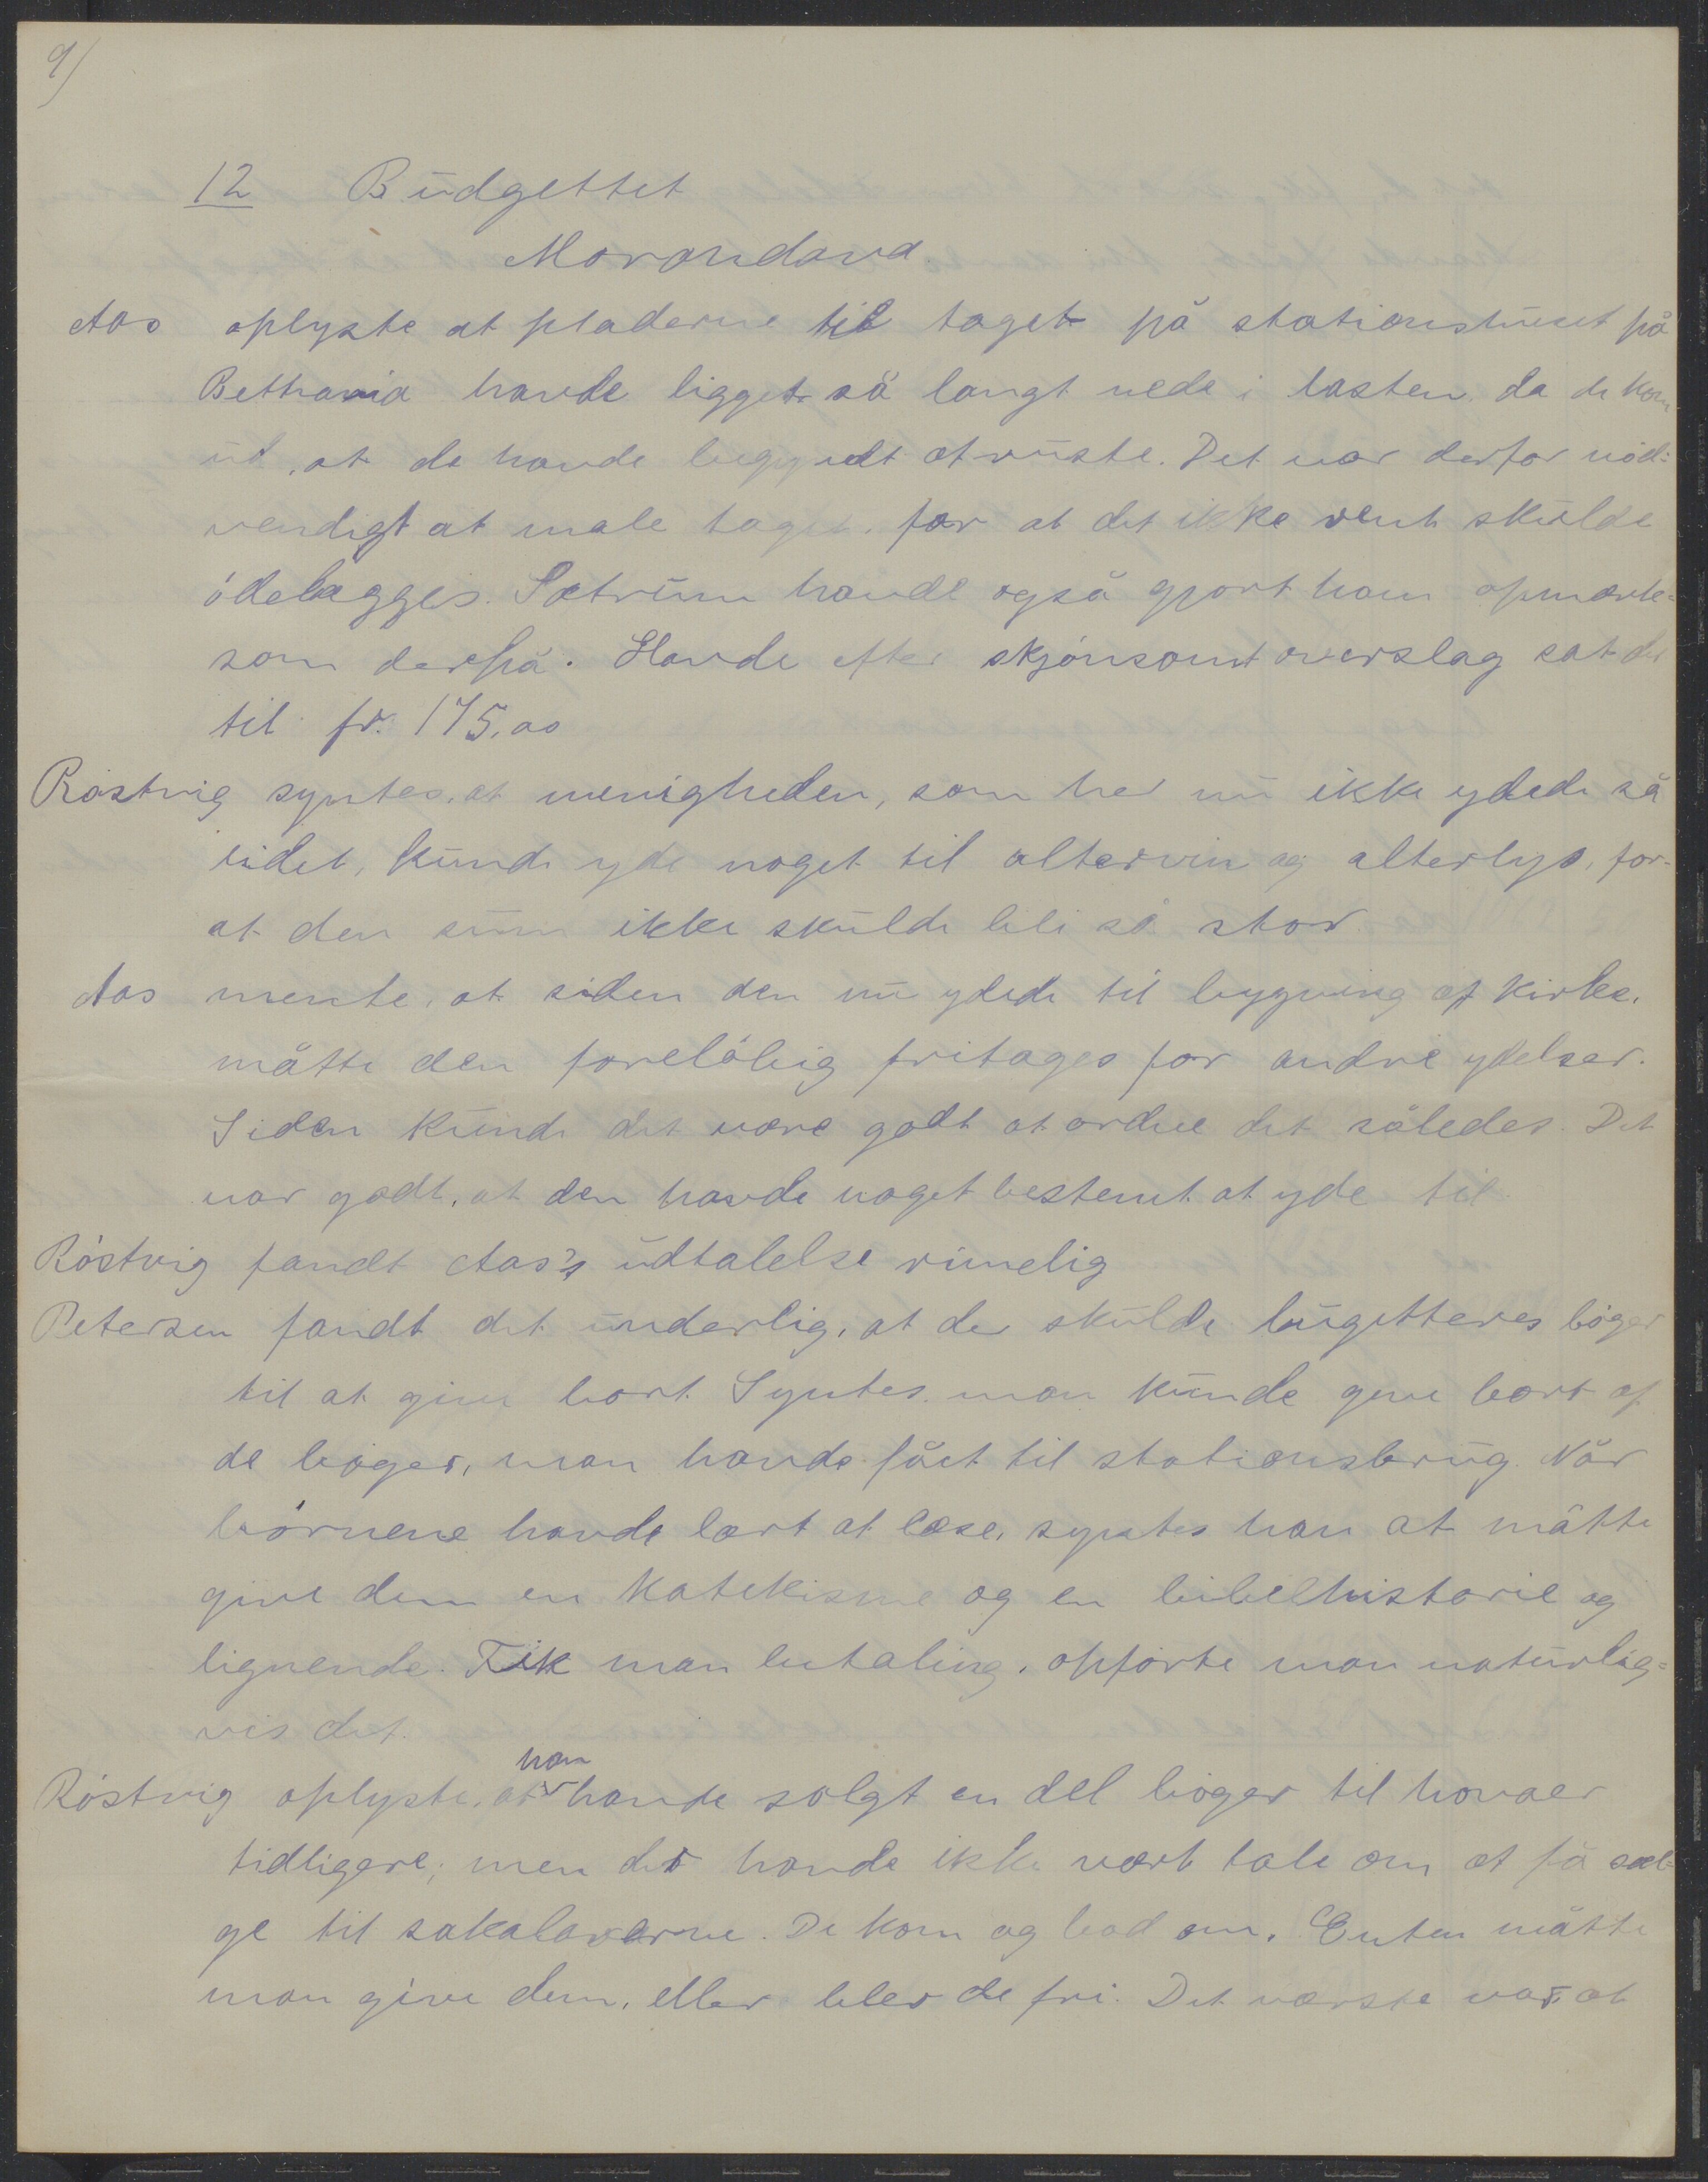 9/
12 Budgettet
Morondava.
Aas oplyste at pladerne til taget på stationshuset på
Bethania havde ligget så langt nede i lasten, da de kom
ud, at de havde begyndt at ruste. Det var derfor nød=
vendigt at male taget, for at det ikke rent skulde
ødelægges. Sætrum havde også gjort ham opmærk=
som derpå. Havde efter skjønsomt overslag sat det
til fr. 175,00
Røstvig syntes, at menigheden, som her nu ikke ydede så
lidet, kunde yde noget til altervin og alterlys, for-
at den sum ikke skulde bli så stor.
Aas mente, at siden den nu ydede til bygning af kirke,
måtte den foreløbig fritages for andre ydelser.
Siden kunde det være godt at ordne det således. Det
var godt, at den havde noget bestemt at yde til.
Røstvig fandt Aas's udtalelse rimelig
Petersen fandt det underlig, at der skulde bugetteres bøger
til at give bort. Syntes man kunde give bort af
de bøger, man havde fået til stationsbrug. Når
børnene havde lært at læse, syntes han at måtte
give dem en katekisme og en bibelhistorie og
lignende. Fik man betaling, opførte man naturlig=
vis det.
Røstvig oplyste, at han havde solgt en del bøger til hovaer
tidligere; men det havde ikke vært tale om at få sæl-
ge til sakalaverne. De kom og bad om. Enten måtte
man give dem, eller blev de fri. Det værste var, at